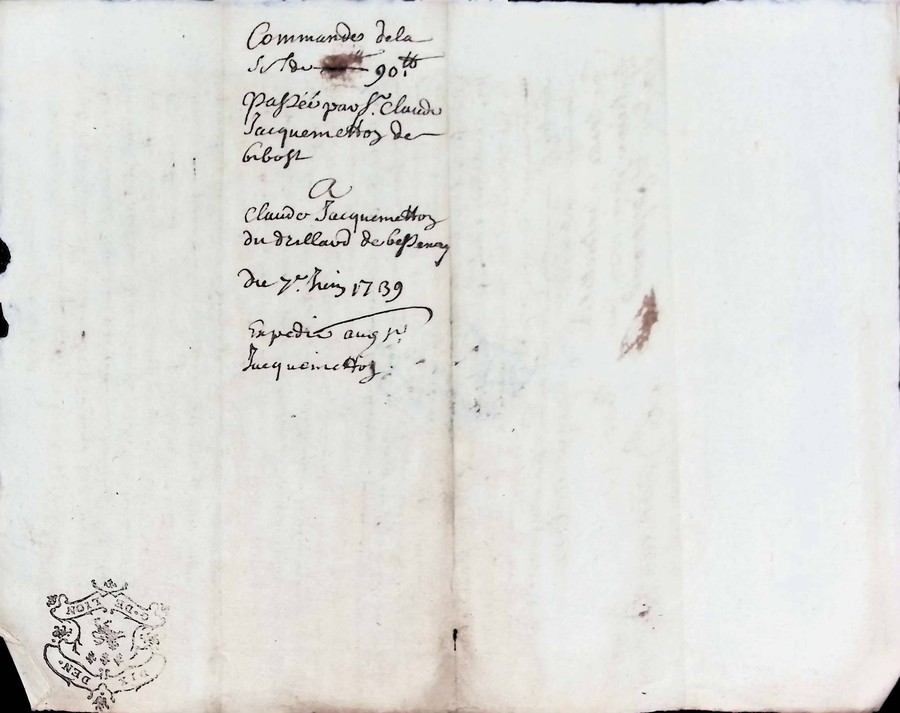 Commandes dela
90.tt
passéé par Sr. Claude
Jacquemetton de
bibost
A
Claude Jacquemetton
du drillard de bessenay
du 7e. Juin 1739
Expedié aud sr.
Jacquemetton
G. DE LYON
DIX DENs.